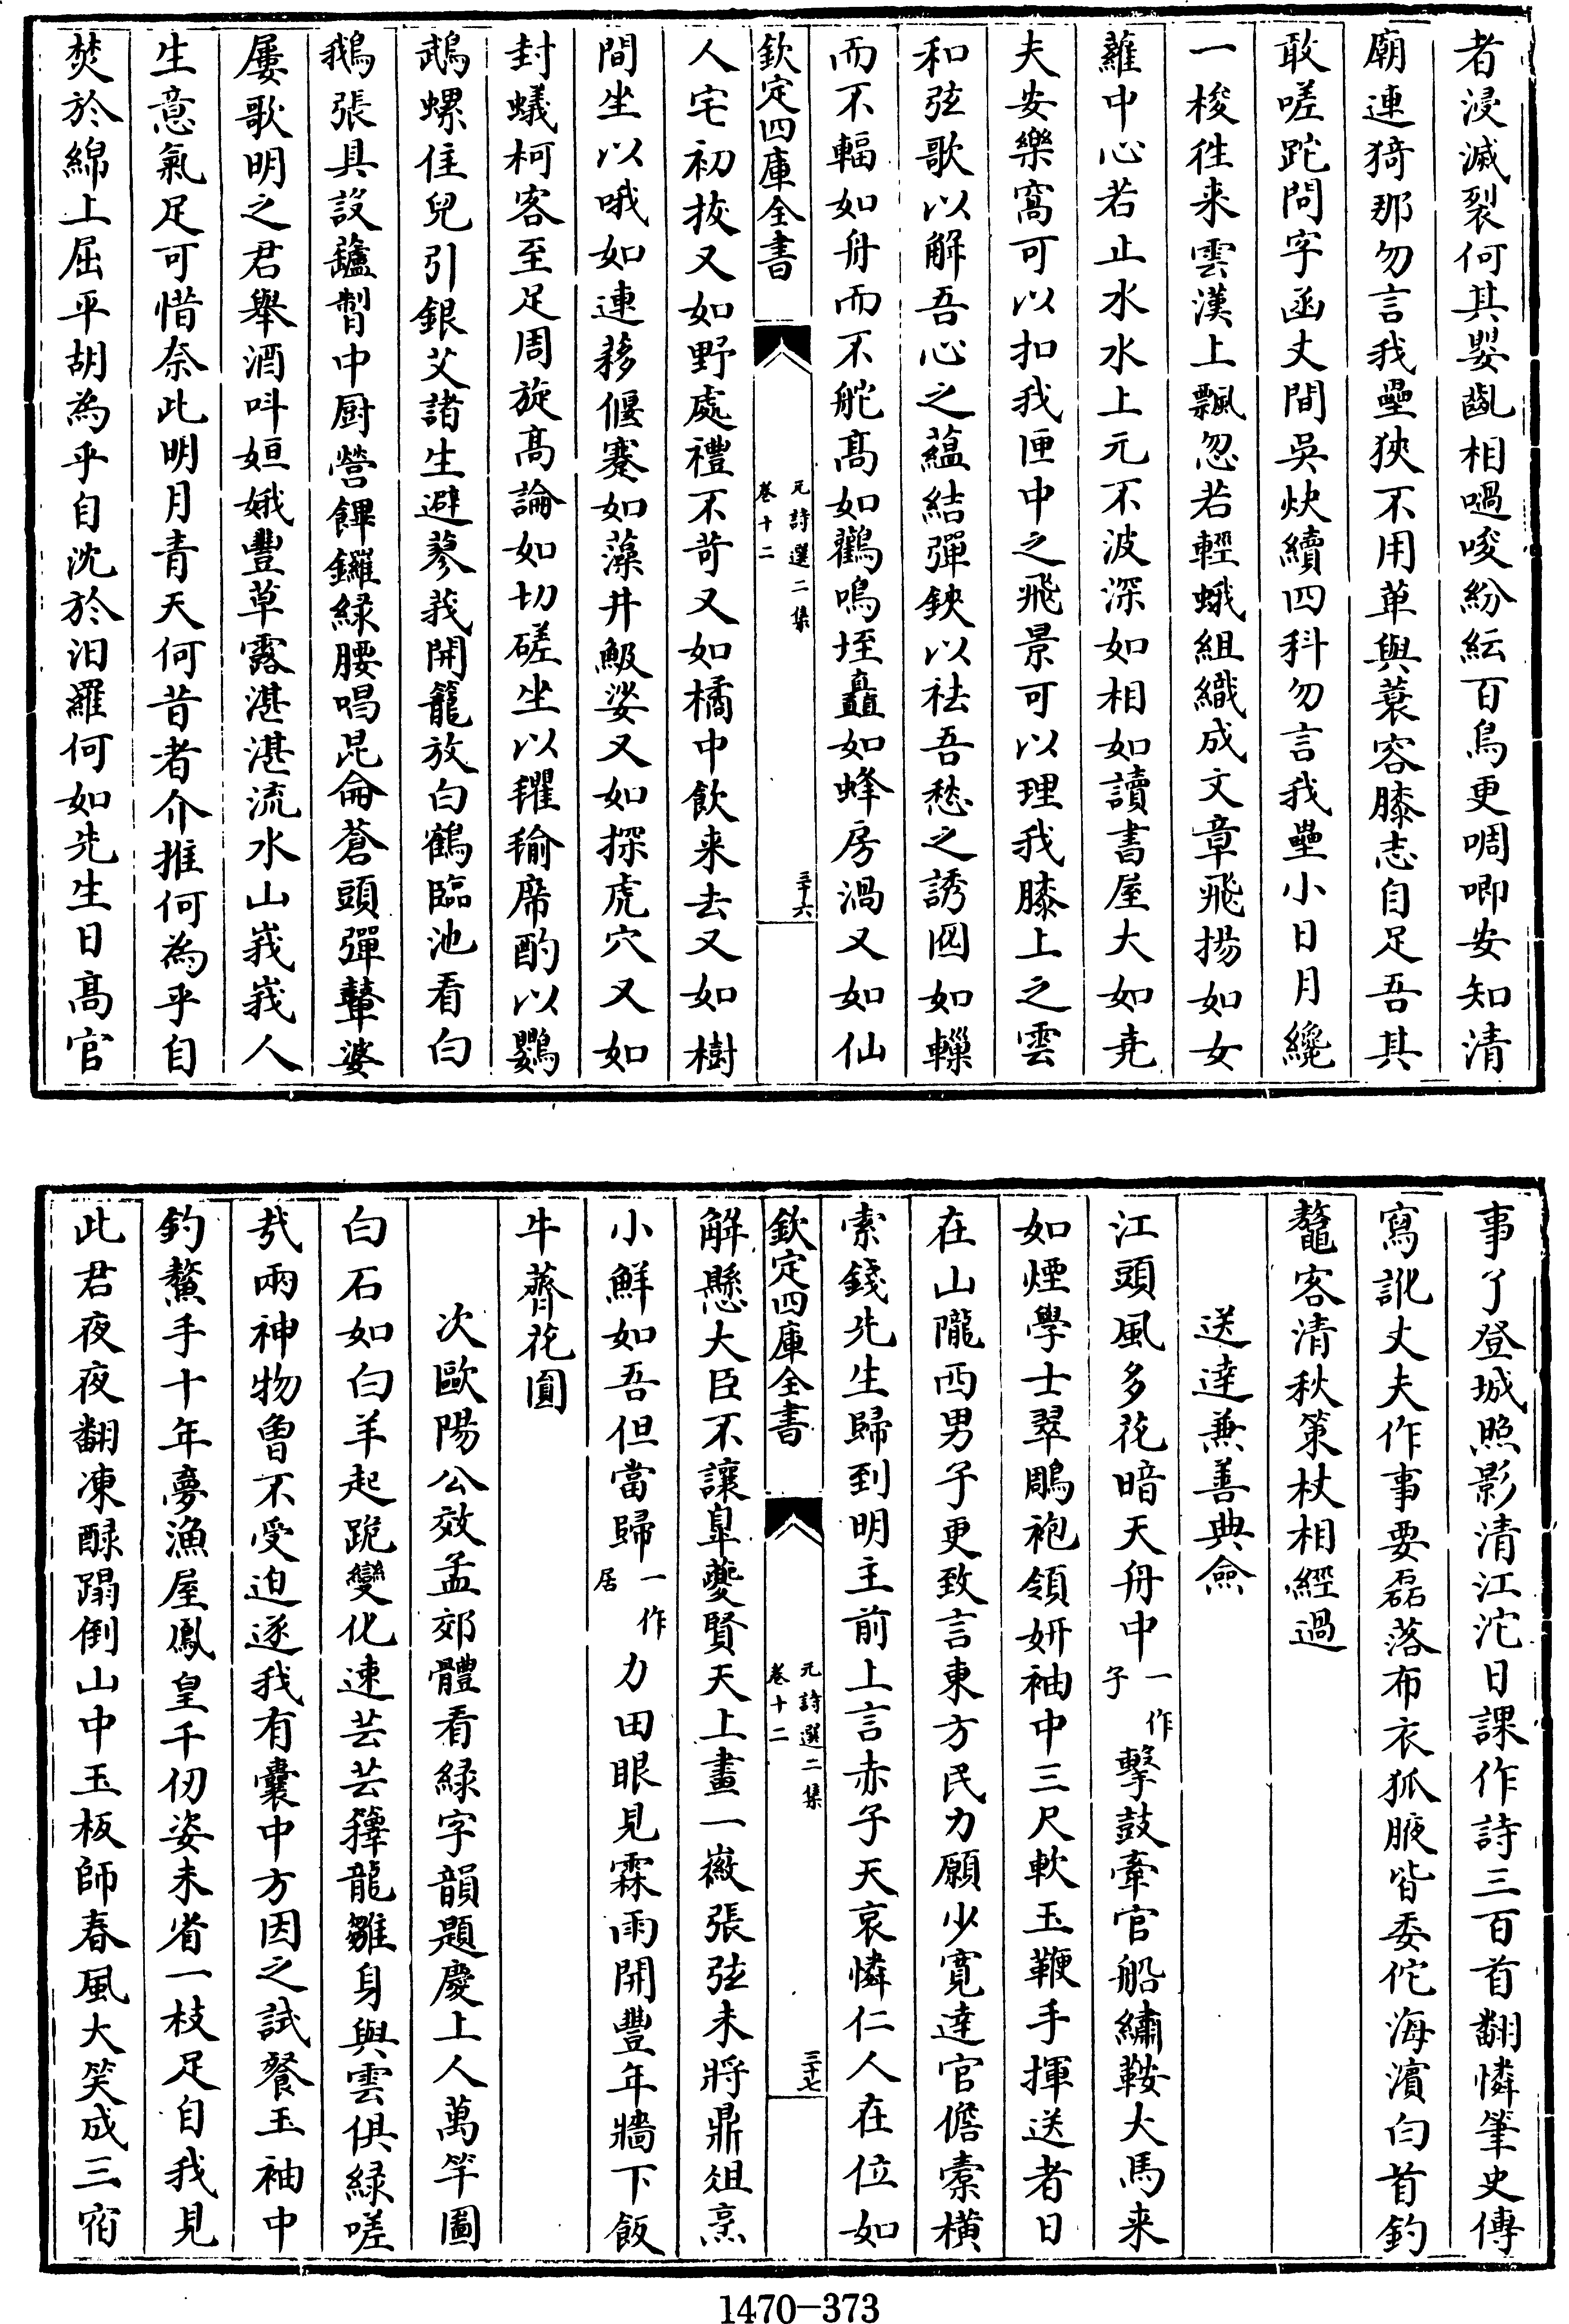 者浸滅裂何其嬰齓相嗢唆紛紜百鳥更啁唧安知清
廟連猗那勿言我壘狹不用草與蓑容膝志自足吾其
敢嗟跎問字函丈間吳炔續四科勿言我壘小日月纔
一梭徃来雲漢上飄忽若輕蛾組織成文章飛揚如女
蘿中心若止水水上元不波深如相如讀書屋大如尭
夫安樂窩可以扣我匣中之飛景可以理我膝上之雲
和弦歌以解吾心之藴結彈鋏以祛吾愁之誘囮如轈
而不輻如舟而不舵髙如鸛鳴垤矗如蜂房渦又如仙
欽定四庫全書
元詩選二集
卷十二
三十六
人宅初拔又如野處禮不苛又如橘中飲来去又如樹
間坐以哦如連簃偃蹇如藻井魥娑又如探虎穴又如
封蟻柯客至足周旋髙論如切磋坐以氍毹席酌以鸚
鵡螺佳兒引銀艾諸生避蓼莪開籠放白鶴臨池看白
鵝張具設鑪䰅中厨營饆饠緑腰唱昆侖蒼頭彈鼙婆
屢歌明之君舉酒呌姮娥豐草露湛湛流水山峩峩人
生意氣足可惜奈此明月青天何昔者介推何為乎自
焚於綿上屈平胡為乎自沈於汨羅何如先生日髙官
事了登城照影清江沱日課作詩三百首翻憐筆史傳
寫訛丈夫作事要磊落布衣狐腋皆委佗海濵白首釣
鼇客清秋策杖相經過
送達兼善典僉
江頭風多花暗天舟中一作子擊鼓牽官船繡鞍大馬来
如煙學士翠鵰袍領妍袖中三尺軟玉鞭手揮送者日
在山隴西男子更致言東方民力願少寛達官儋橐橫
索錢先生歸到明主前上言赤子天哀憐仁人在位如
欽定四庫全書
元詩選二集
卷十二
三十七
解懸大臣不讓臯夔賢天上畫一嶶張弦未將鼎俎烹
小鮮如吾但當歸一作居力田眼見霖雨開豐年牆下飯
牛薺花圓
次歐陽公效孟郊體看緑字韻題慶上人萬竿圖
白石如白羊起跪變化速芸芸籜龍雛身與雲俱緑嗟
㢤兩神物曽不受迫逐我有囊中方因之試餐玉袖中
釣鰲手十年夢漁屋鳳皇千仞姿未省一枝足自我見
此君夜夜翻凍醁蹋倒山中玉板師春風大笑成三宿
1470-373